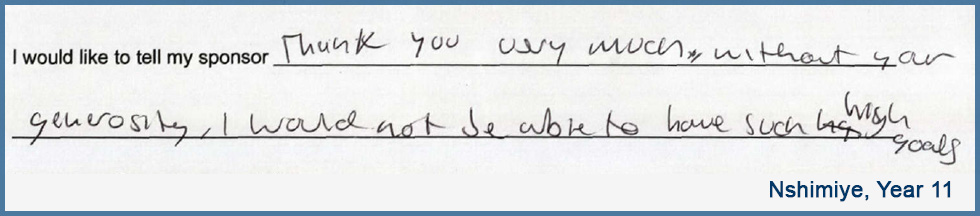 I would like to tell my sponsor Thank you very much, without your
generosity, I would not be able to have such high goals
Nshimiye, Year 11